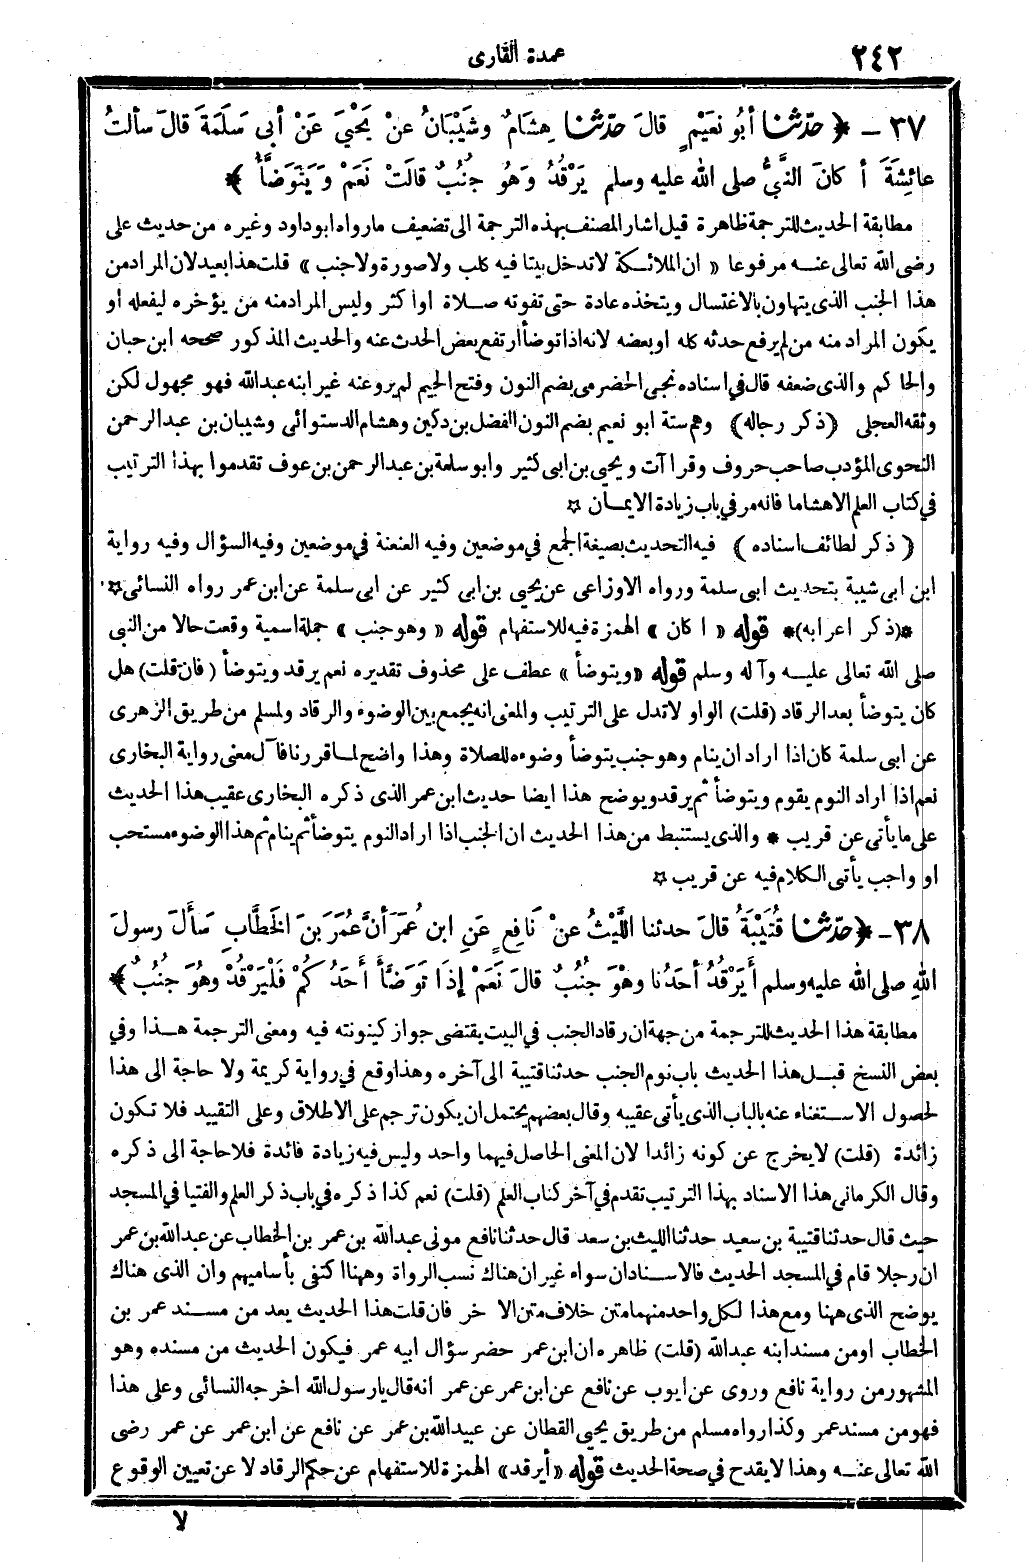 ٢٤٢
عمدة القارى
٣٧ - ﴿ حدّثنا أبُو نعَيْمٍ قالَ حدّثنا هِشَامٌ وشَيْبَانُ عنْ يَحْيَى عَنْ أبِي سَلَمَةَ قالَ سألتُ
عائِشَةَ أ كانَ النَّبيُّ صلى الله عليه وسلم يَرْقُدُ وَهُوَ جنُبٌ قالَتْ نَعَمْ وَيَتَوَضَّأُ ﴾
مطابقة الحديث للترجمة ظاهرة قيل اشار المصنف بهذه الترجمة الى تضعيف مارواه ابوداود وغيره من حديث على
رضى الله تعالى عنـــه مرفوعا « ان الملائكة لا تدخل بيتا فيه كلب ولا صورة ولا جنب » قلت هذا بعيد لان المراد من
هذا الجنب الذى يتهاون بالاغتسال ويتخذه عادة حتى تفوته صـلاة او اكثر وليس المراد منه من يؤخره ليفعله أو
يكون المراد منه من لم يرفع حدثه كله او بعضه لانه اذا توضأ ارتفع بعض الحدث عنه والحديث المذكور صححه ابن حبان
والحاكم والذى ضعفه قال فى اسناده نجى الحضرمى بضم النون وفتح الجيم لم يرو عنه غير ابنه عبدالله فهو مجهول لكن
وثقه العجلى ﴿ ذكر رجاله ﴾ وهم ستة ابو نعيم بضم النون الفضل بن دكين وهشام الدستوائى وشيبان بن عبدالرحمن
النحوى المؤدب صاحب حروف وقراآت ويحيى بن ابى كثير وابو سلمة بن عبدالرحمن بن عوف تقدموا بهذا الترتيب
فى كتاب العلم الا هشاما فانه مر فى باب زيادة الايمــان ☆
( ذكر لطائف اسناده ) فيه التحديث بصيغة الجمع فى موضعين وفيه العنعنة فى موضعين وفيه السؤال وفيه رواية
ابن ابى شيبة بتحديث ابى سلمة ورواه الاوزاعى عن يحيى بن ابى كثير عن ابى سلمة عن ابن عمر رواه النسائى ☆
*( ذكر اعرابه )* قوله « ا كان » الهمزة فيه للاستفهام قوله « وهو جنب » جملة اسمية وقعت حالا من النبى
صلى الله تعالى عليــه وآله وسلم قوله « ويتوضأ » عطف على محذوف تقديره نعم يرقد ويتوضأ ( فان قلت ) هل
كان يتوضأ بعد الرقاد ( قلت ) الواو لا تدل على الترتيب والمعنى انه يجمع بين الوضوء والرقاد ولمسلم من طريق الزهرى
عن ابى سلمة كان اذا اراد ان ينام وهو جنب يتوضأ وضوءه للصلاة وهذا واضح لمـا قررنا فآل معنى رواية البخارى
نعم اذا اراد النوم يقوم ويتوضأ ثم يرقد ويوضح هذا ايضا حديث ابن عمر الذى ذكره البخارى عقيب هذا الحديث
على ما يأتى عن قريب * والذى يستنبط من هذا الحديث ان الجنب اذا اراد النوم يتوضأ ثم ينام ثم هذا الوضوء مستحب
او واجب يأتى الكلام فيه عن قريب ☆
٣٨ - ﴿ حدّثنا قُتَيْبَةُ قالَ حدثنا اللَّيْثُ عنْ نَافِعٍ عَنِ ابن عُمَرَ أنَّ عُمَرَ بنَ الخَطَّابِ سَألَ رسولَ
اللهِ صلى الله عليه وسلم أَيَرْقُدُ أحَدُنا وهْوَ جنُبٌ قالَ نَعَمْ إذَا تَوَضَّأَ أَحَدُكُمْ فَلْيَرْقُدْ وهُوَ جنُبٌ ﴾
مطابقة هذا الحديث للترجمة من جهة ان رقاد الجنب فى البيت يقتضى جواز كينونته فيه ومعنى الترجمة هــذا وفى
بعض النسخ قبــل هذا الحديث باب نوم الجنب حدثنا قتيبة الى آخره وهذا وقع فى رواية كريمة ولا حاجة الى هذا
لحصول الاســتغناء عنه بالباب الذى يأتى عقيبه وقال بعضهم يحتمل ان يكون ترجم على الاطلاق وعلى التقييد فلا تكون
زائدة ( قلت ) لا يخرج عن كونه زائدا لان المعنى الحاصل فيهما واحد وليس فيه زيادة فائدة فلا حاجة الى ذكره
وقال الكرمانى هذا الاسناد بهذا الترتيب تقدم فى آخر كتاب العلم ( قلت ) نعم كذا ذكره فى باب ذكر العلم والفتيا فى المسجد
حيث قال حدثنا قتيبة بن سعيد حدثنا الليث بن سعد قال حدثنا نافع مولى عبدالله بن عمر بن الخطاب عن عبدالله بن عمر
ان رجلا قام فى المسجد الحديث فالاسنادان سواء غير ان هناك نسب الرواة وههنا اكتفى بأساميهم وان الذى هناك
يوضح الذى ههنا ومع هذا لكل واحد منهما متن خلاف متن الآخر فان قلت هذا الحديث يعد من مســند عمر بن
الخطاب او من مسند ابنه عبدالله ( قلت ) ظاهره ان ابن عمر حضر سؤال ابيه عمر فيكون الحديث من مسنده وهو
المشهور من رواية نافع وروى عن ايوب عن نافع عن ابن عمر عن عمر انه قال يا رسول الله اخرجه النسائى وعلى هذا
فهو من مسند عمر وكذا رواه مسلم من طريق يحيى القطان عن عبيدالله بن عمر عن نافع عن ابن عمر عن عمر رضى
الله تعالى عنــه وهذا لا يقدح فى صحة الحديث قوله « أيرقد » الهمزة للاستفهام عن حكم الرقاد لا عن تعيين الوقوع
لا